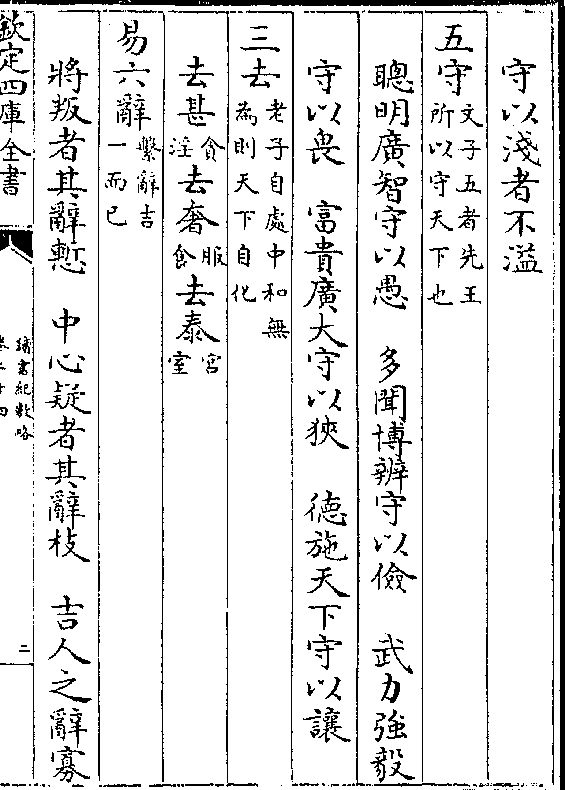 守以淺者不溢
五守文子五者先王所以守天下也
聰明廣智守以愚　多聞博辨守以儉　武力強毅
守以畏　富貴廣大守以狹　徳施天下守以讓
三去老子自處中和無為則天下自化
去甚貪淫去奢服食去泰宮室
易六辭繫辭吉一而已
將叛者其辭慙　中心疑者其辭枝　吉人之辭寡
欽定四庫全書
讀書紀數略
卷二十四
二